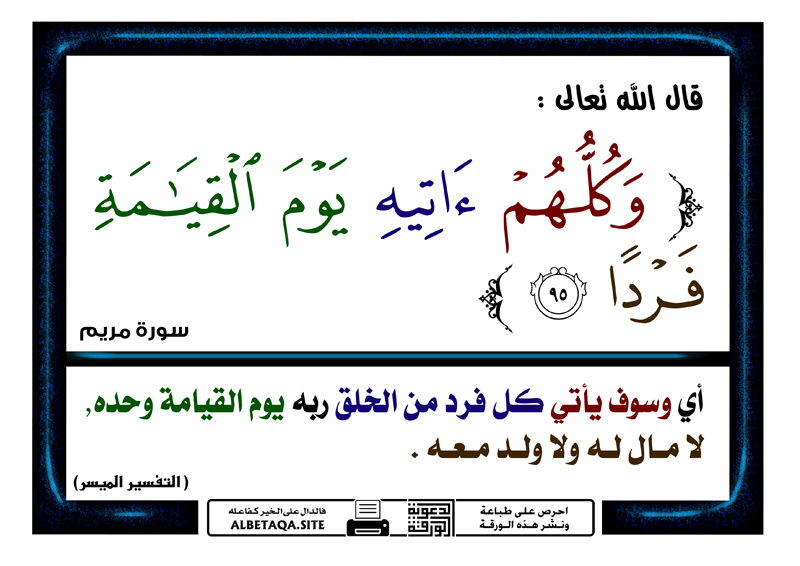 قال الله تعالى :
﴿ وَكُلُّهُمْ ءَاتِيهِ يَوْمَ ٱلْقِيَـٰمَةِ
فَرْدًا ٩٥ ﴾
سورة مريم
أي وسوف يأتي كل فرد من الخلق ربه يوم القيامة وحده,
لا مال له ولا ولد معه .
(التفسير الميسر)
فالدال على الخير كفاعله
ALBETAQA.SITE
الدعوية
الورقة
احرص على طباعة
ونشر هذه الورقة